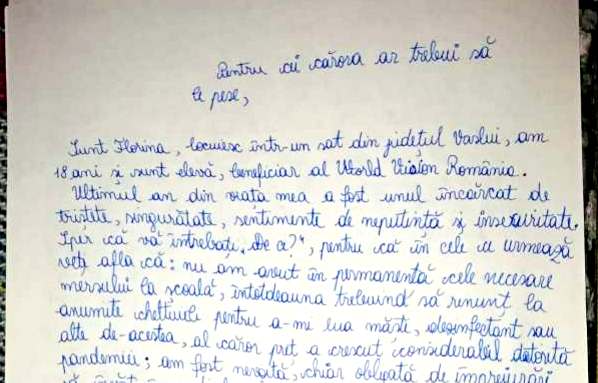 Pentru cei cărora ar trebui să
le pese,
Sunt Florina, locuiesc într-un sat din județul Vaslui, am
18 ani și sunt elevă, beneficiar al World Vision România.
Ultimul an din viața mea a fost unul încărcat de
tristețe, singurătate, sentimente de neputință și insecuritate.
Sper că vă întrebați „De ce?", pentru că în cele ce urmează
veți afla că: nu am avut în permanență cele necesare
mersului la școală, întotdeauna trebuind să renunț la
anumite cheltuieli pentru a-mi lua măști, dezinfectant sau
alte de-acestea, al căror preț a crescut considerabil datorită
pandemiei; am fost nevoită, chiar obligată de împrejurări